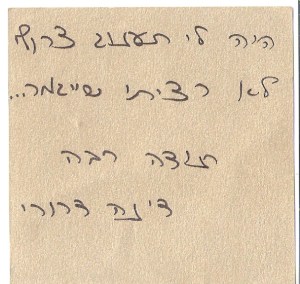 היה לי תענוג צרוף
לא רציתי שייגמר...
תודה רבה
דינה דרורי